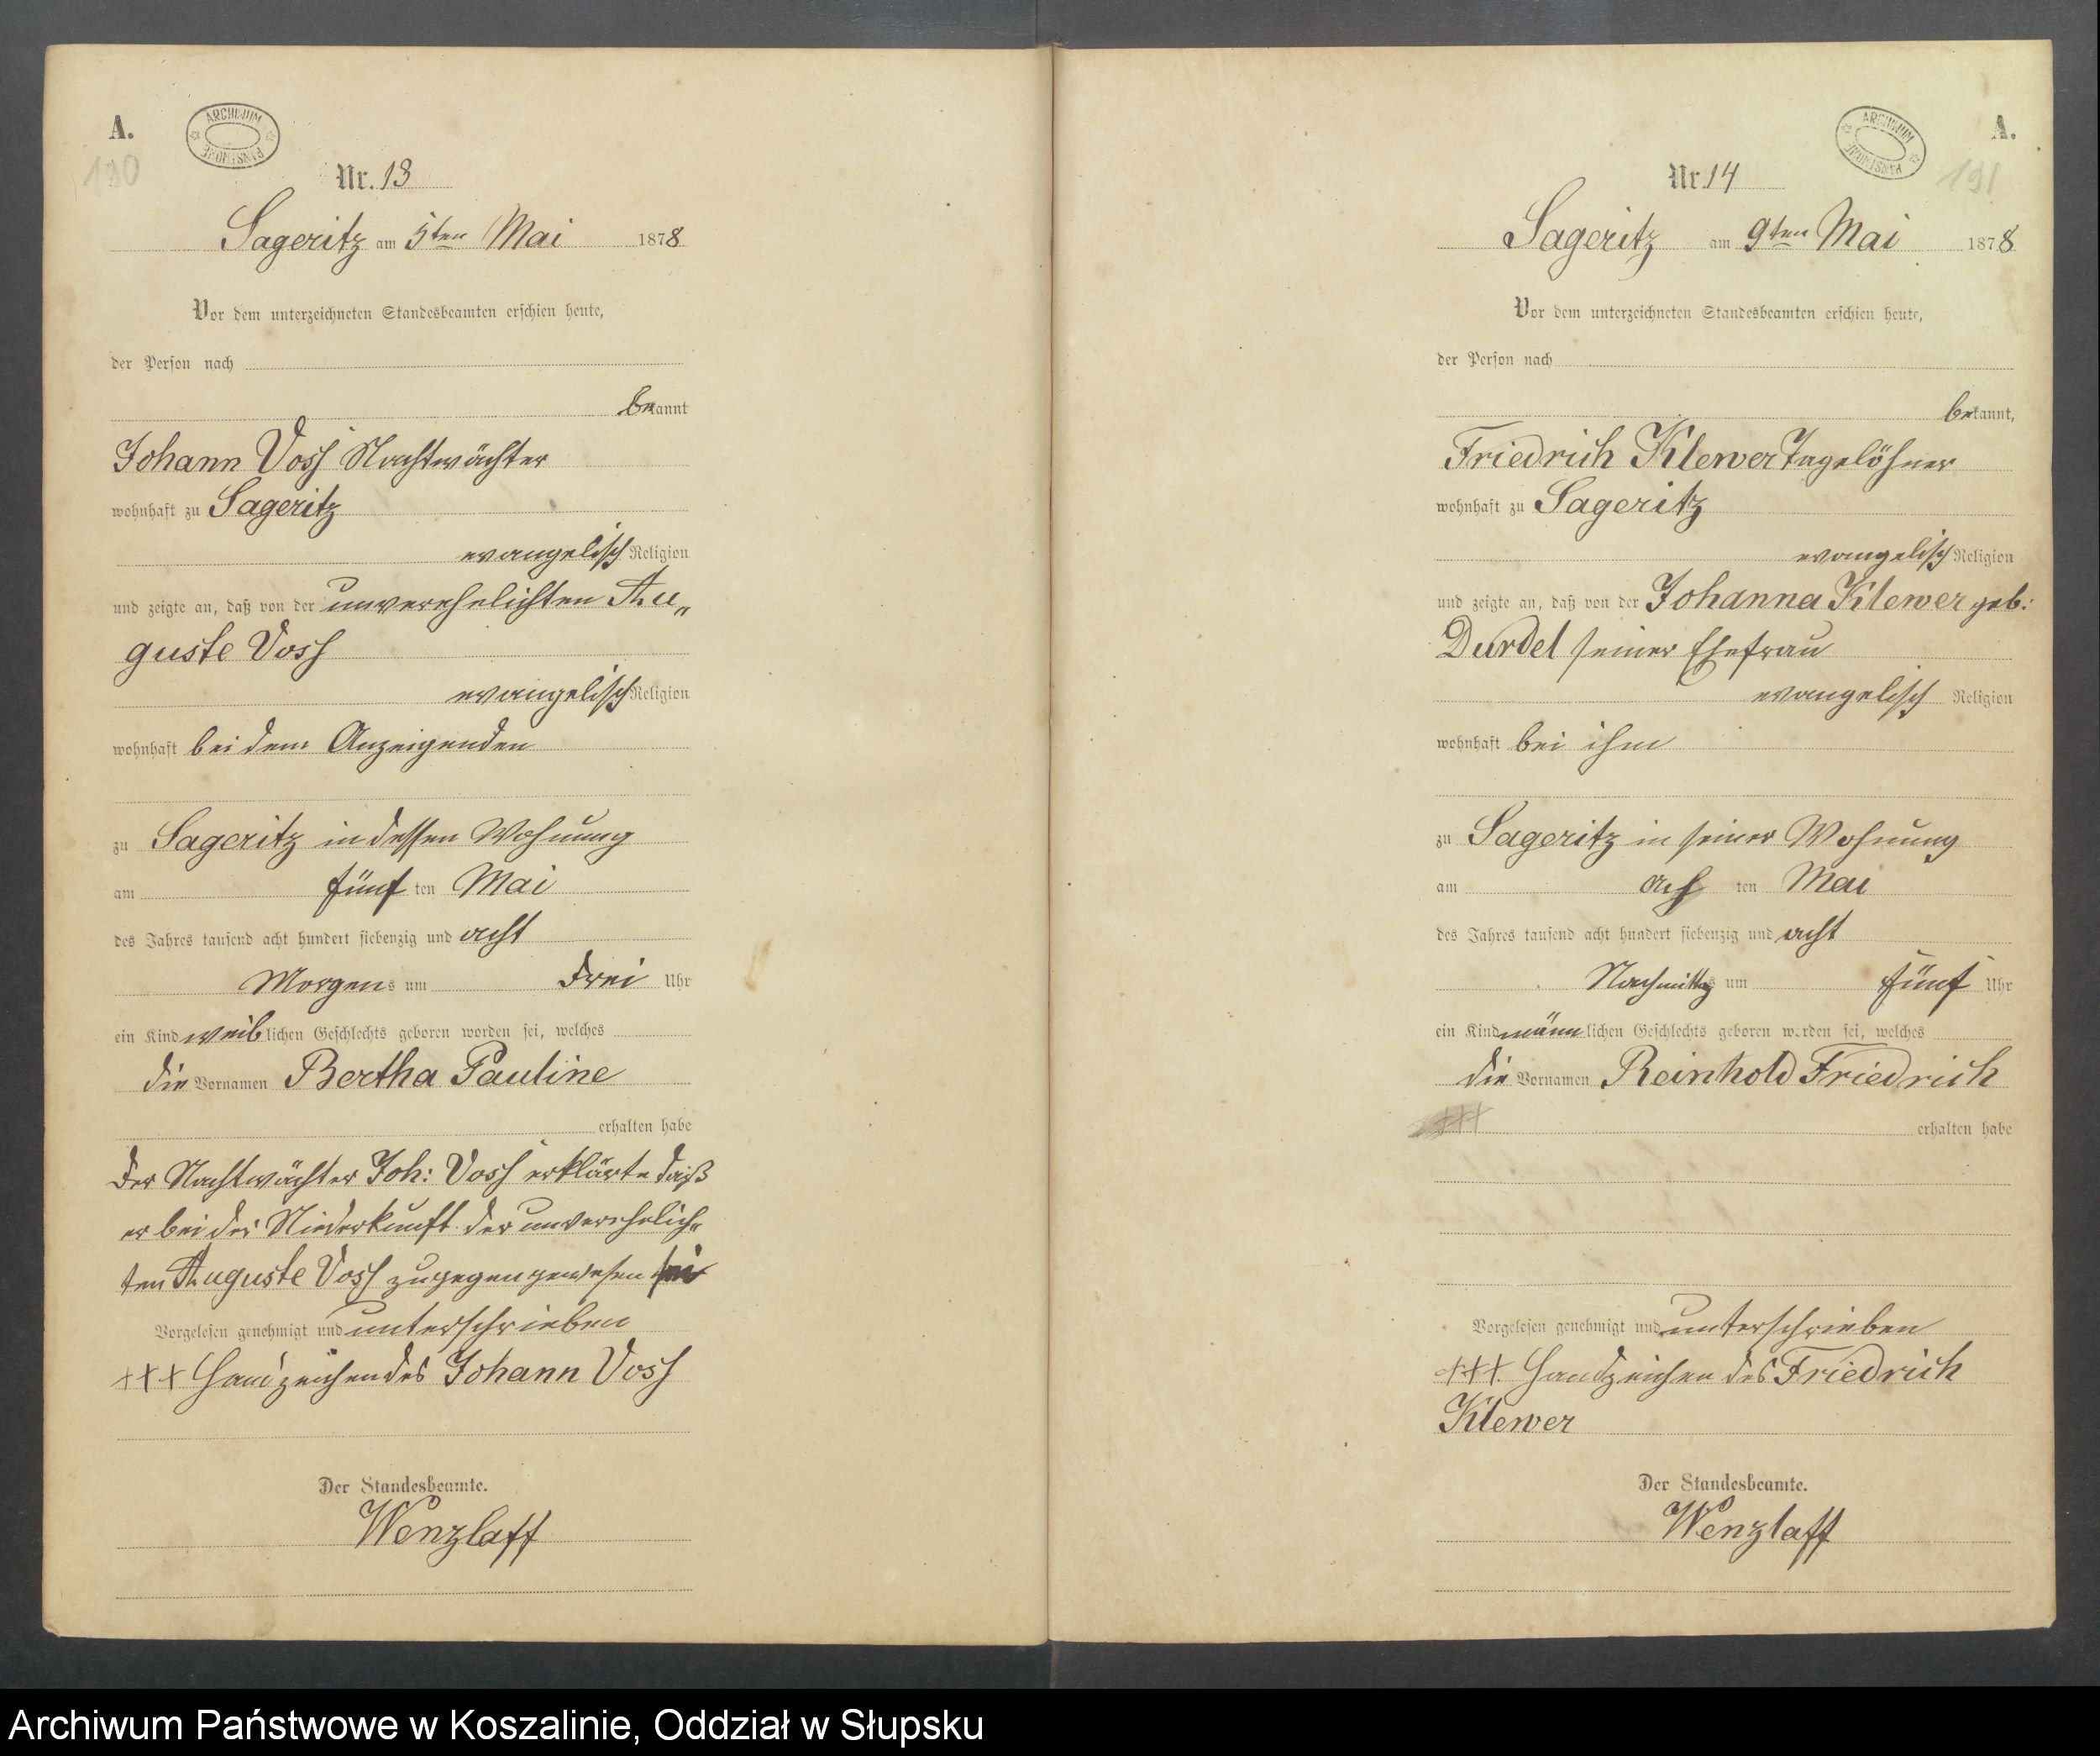 A.
ARCHIWUM PAŃSTWOWE
190
Nr. 13
Sageritz am 5ten Mai 1878
Vor dem unterzeichneten Standesbeamten erschien heute,
der Person nach
bekannt
Johann Voss Nachtwächter
wohnhaft zu Sageritz
evangelisch Religion
und zeigte an, daß von der unverehelichten Au„
guste Voss
evangelisch Religion
wohnhaft bei dem Anzeigenden
zu Sageritz in dessen Wohnung
am fünf ten Mai
des Jahres tausend acht hundert siebenzig und acht
Morgens um drei Uhr
ein Kind weiblichen Geschlechts geboren worden sei, welches
die Vornamen Bertha Pauline
erhalten habe
Der Nachtwächter Joh: Voss erklärte daß
er bei der Niederkunft der unverehelich„
ten Auguste Voss zugegen gewesen sei
Vorgelesen genehmigt und unterschrieben
+++ Handzeichen des Johann Voss
Der Standesbeamte.
Wenzlaff
A.
ARCHIWUM PAŃSTWOWE
191
Nr. 14
Sageritz am 9ten Mai 1878
Vor dem unterzeichneten Standesbeamten erschien heute,
der Person nach
bekannt,
Friedrich Klewer Tagelöhner
wohnhaft zu Sageritz
evangelisch Religion
und zeigte an, daß von der Johanna Klewer geb:
Durdel seiner Ehefrau
evangelisch Religion
wohnhaft bei ihm
zu Sageritz in seiner Wohnung
am ach ten Mai
des Jahres tausend acht hundert siebenzig und acht
Nachmittags um fünf Uhr
ein Kind männlichen Geschlechts geboren worden sei, welches
die Vornamen Reinhold Friedrich
+++ erhalten habe
Vorgelesen genehmigt und unterschrieben
+++ Handzeichen des Friedrich
Klewer
Der Standesbeamte.
Wenzlaff
Archiwum Państwowe w Koszalinie, Oddział w Słupsku